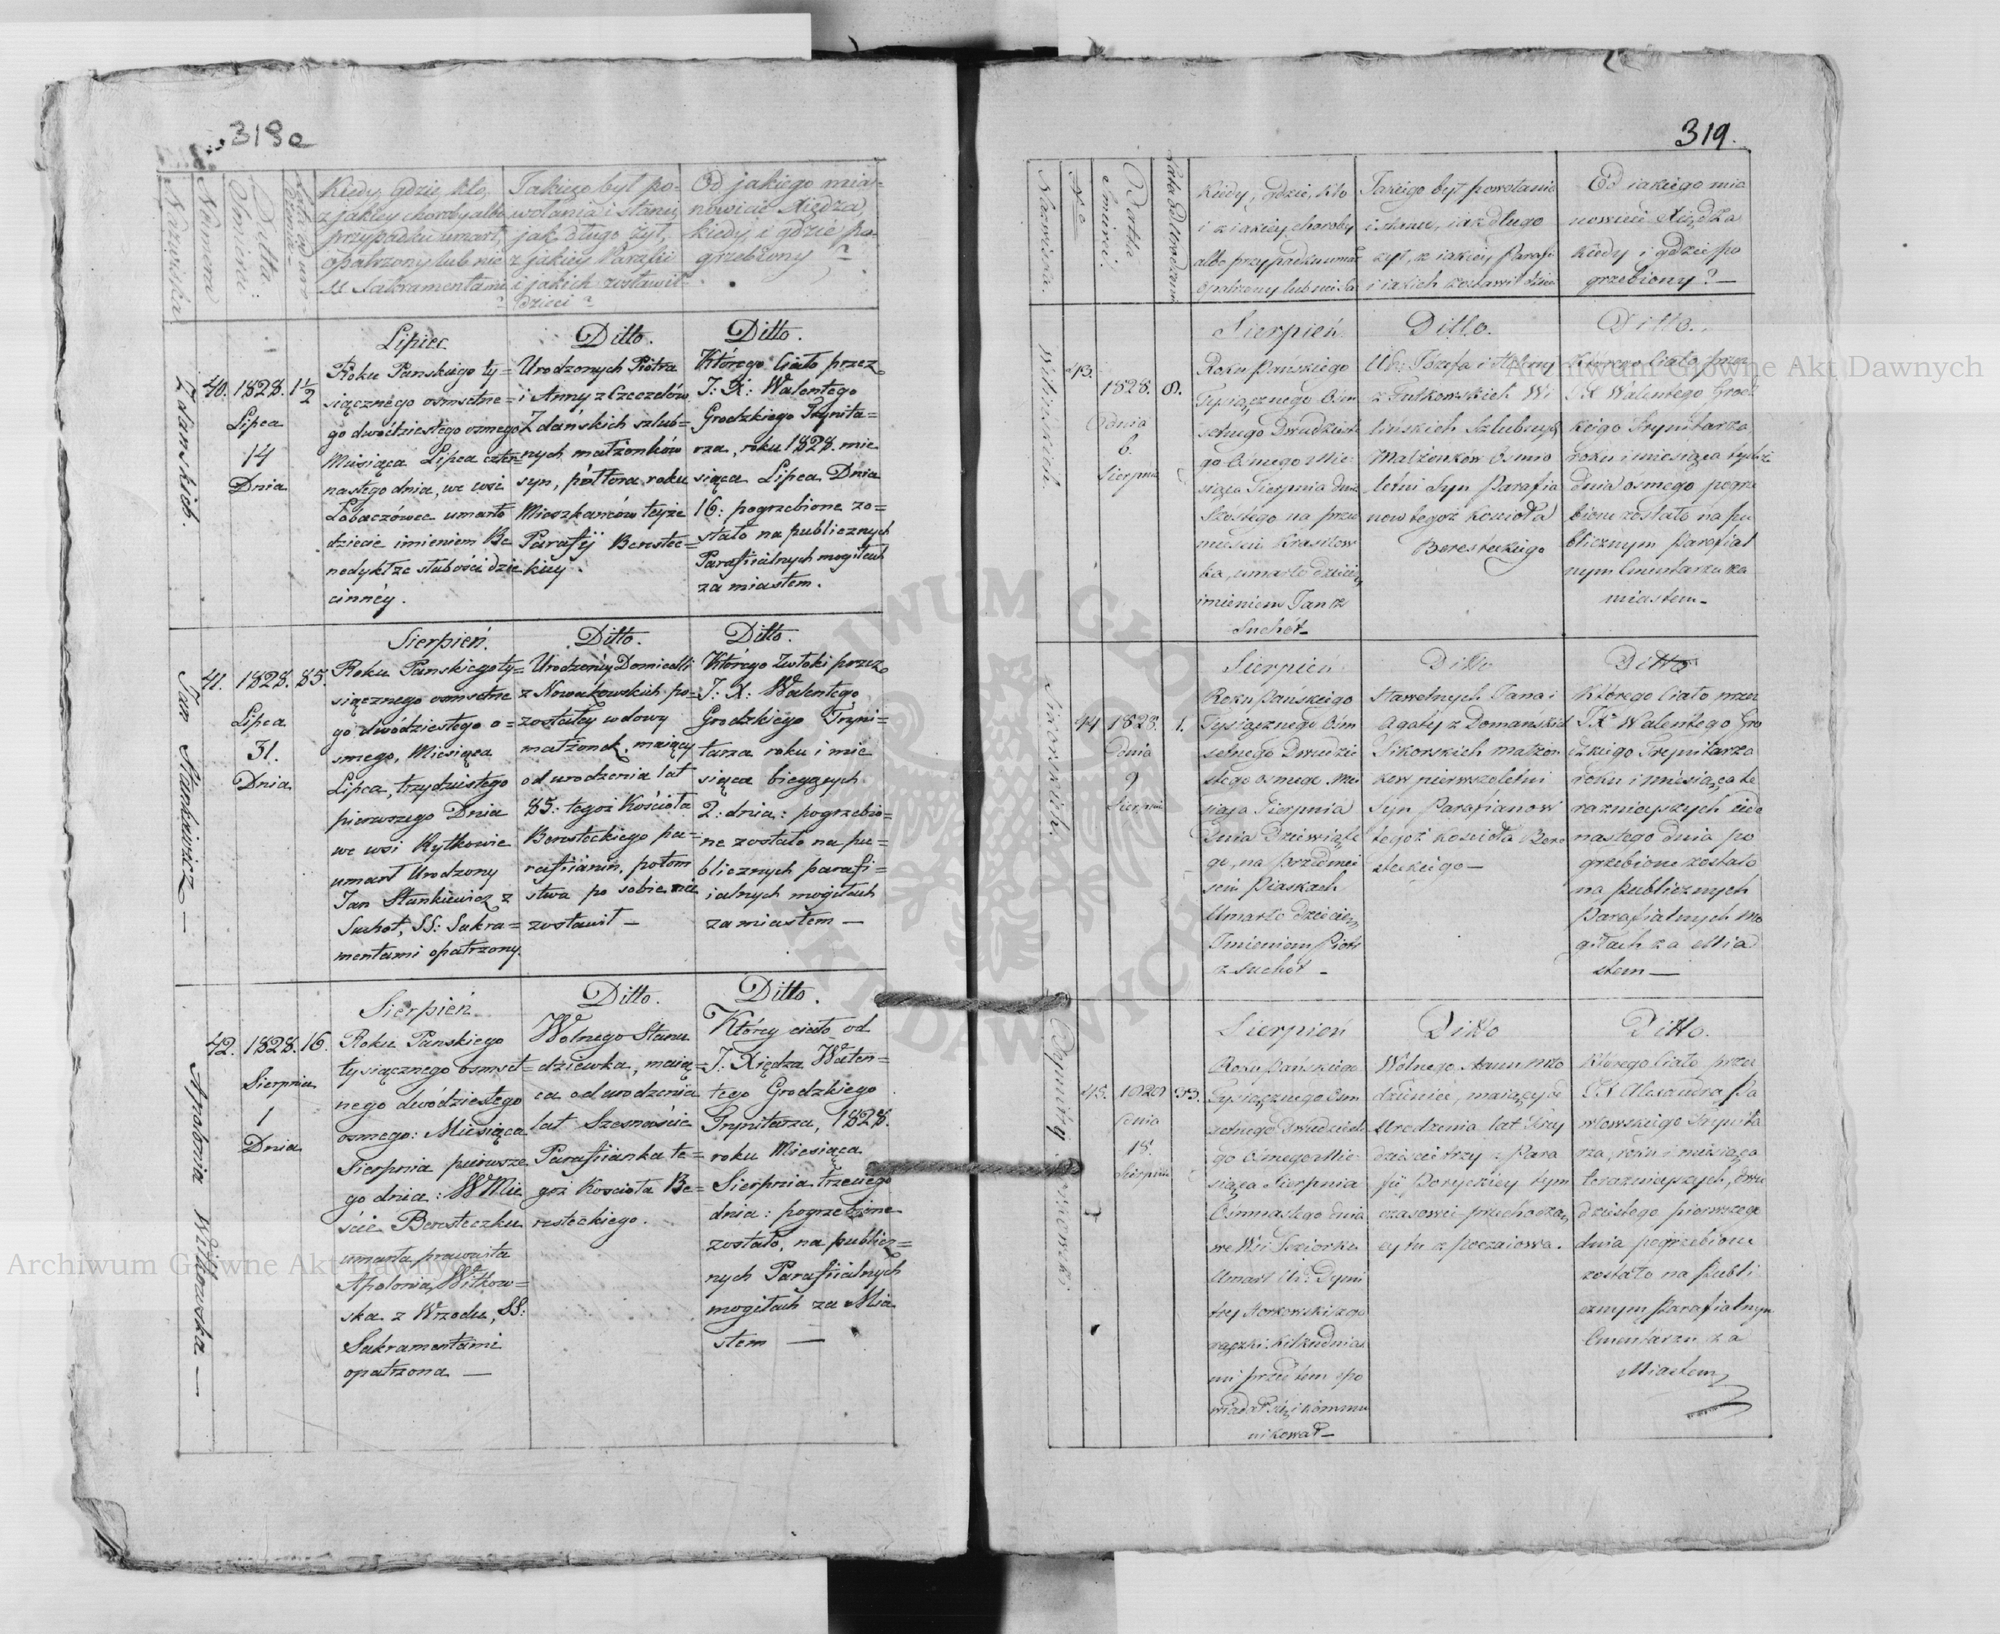 319
Nazwiska
Numera
Datta Smierci:
Kiedy, Gdzie, kto,
z jakiey choroby albo
przypadku umarł,
opatrzony lub nie
SS Sakramentami
?
Takiego był po-
wołania i stanu,
jak długo żył,
z jakiey Parafii
i jakich zostawił
dzieci?
Od jakiego mia-
nowicie Xiędza,
kiedy, i gdzie po-
grzebiony?
Zdanskich.
40.
1828.
Lipca
14
Dnia
1 1/2
Lipiec
Roku Panskiego ty=
siącznego osmsetne=
go dwódziestego osmego
Miesiąca Lipca czter=
nastego dnia, we wsi
Łobaczówce umarło
dziecie imieniem Be
nedykt ze słabości dzie
cinnéy.
Ditto.
Urodzonych Piotra
i Anny z Czeczelów
Zdańskich szlub=
nych małżonków
syn, półtora roku
Mieszkańców teyże
Parafij Berestec=
kiey.
Ditto.
Którego Ciało przez
J: X: Walentego
Grodzkiego Trynita=
rza, roku 1828. mie
siąca Lipca Dnia
16: pogrzebione zo=
stało na publicznych
Parafiialnych mogiłach
za miastem.
Jan Stankiewicz —
41.
1828.
Lipca
31.
Dnia
85.
Sierpień.
Roku Panskiego ty=
siącznego osmsetne
go dwódziestego o=
smego, Miesiąca
Lipca, trzydziestego
pierwszego Dnia
we wsi Rytkowie
umarł Urodzony
Jan Stankiewicz z
Suchot, SS: Sakra=
mentami opatrzony.
Ditto.
Urodzonéy Domicelli
z Nowakowskich po=
zostałey wdowy
małżonek, maiący
od urodzenia lat
85: tegoż Kościoła
Beresteckiego pa=
rafiianin, potom
stwa po sobie nie
zostawił —
Ditto.
Którego Zwłoki przez
J: X: Walentego
Grodzkiego Tryni=
tarza roku i mie
siąca bieżących
2: dnia: pogrzebio=
ne zostało na pu=
blicznych parafi=
ialnych mogiłach
za miastem —
Apolonia Witkowska —
42.
1828.
Sierpnia
1
Dnia
16.
Sierpień
Roku Panskiego
tysiącznego osmset=
nego dwódziestego
osmego: Miesiąca
Sierpnia pierwsze
go dnia: W Mie
ście Beresteczku
umarła prawowita
Apolonia Witkow=
ska z Wrzodu, SS:
Sakramentami
opatrzona —
Ditto.
Wolnego Stanu
dziewka, maią=
ca od urodzenia
lat Szesnaście
Parafiianka te=
goż Kościoła Be=
resteckiego.
Ditto.
Którey ciało od
J: Xiędza Walen=
tego Grodzkiego
Trynitarza, 1828.
roku Miesiąca
Sierpnia trzeciego
dnia: pogrzebione
zostało, na publicz=
nych Parafiialnych
mogiłach za Mia
stem —
319.
Nazwiska
No
Datta Smierci.
Lata od Urodzenia
Kiedy, gdzie, kto
i z iakiey choroby
albo przypadku umarł
Opatrzony lub nie Sa
Takiego był powołania
i stanu, iak długo
żył, z iakiey Parafi
i iakich zostawił dzieci
Od iakiego mia
nowicie Xiędza
kiedy i gdzie po
grzebiony? —
43.
1828.
dnia
6.
Sierpnia
8.
Sierpień
Roku Pańskiego
Tysiącznego Ośm
setnego Dwudzieste
go Osmego Mie
siąca Sierpnia dnia
Szóstego na przed
mieściu Krasiłow
ka, umarło dziecię
imieniem Jan z
Suchót —
Ditto.
z Gutkowskich Wi
lińskich Szlubnych
Małżonków Ośmio
letni Syn Parafia
now tegoż Kościoła
Beresteckiego
Ditto.
Którego Ciało przez
J X Walentego Grodz
kiego Trynitarza
roku i miesiąca tychże
dnia osmego pogrze
bione zostało na pu
blicznym Parafial
nym Cmentarzu za
miastem —
Sikorskich.
44
1828.
Dnia
9
Sierpnia
1.
Sierpień
Roku Pańskiego
Tysiącznego Ośm
setnego Dwudzie
stego osmego Mie
siąca Sierpnia
Dnia Dziewiąte
go, na Przedmie
ściu Piaskach
Umarło dziecię
Imieniem Piotr
z Suchót —
Ditto
Sławetnych Jana i
Agaty z Domańskich
Sikorskich małżon
kow pierwszoletni
Syn Parafianow
tegoż Kościoła Bere
steckiego —
Ditto
Którego Ciało przez
J X Walentego Gro
dzkiego Trynitarza
roku i miesiąca te
raznieyszych iede
nastego dnia po
grzebione zostało
na Publicznych
Parafialnych Mo
giłach za Mia
stem —
45.
dnia
18.
Sierpnia
33.
Sierpień
Roku Pańskiego
Tysiącznego Ośm
setnego Dwudzieste
go Ośmego Mie
siąca Sierpnia
Ośmnastego dnia
we Wsi Jeziorku
Umarł Ur: Dymi
rączki kilkudnia
mi przed tem spo
wiadał się i kommu
nikował —
Ditto
Wolnego Stanu Mło
dzieniec, maiący od
Urodzenia lat trzy
dzieści trzy z Para
fii Poryckiey tym
czasowie przechodzą
cy tu z Poczaiowa.
Ditto.
Którego Ciało przez
J X Alexandra Pa
włowskiego Trynita
rza, roku i miesiąca
teraznieyszych, Dwu
dziestego pierwszego
dnia pogrzebione
zostało na Publi
cznym Parafialnym
Cmentarzu za
Miastem
Archiwum Główne Akt Dawnych
Archiwum Główne Akt Dawnych
ARCHIWUM GŁÓWNE
AKT DAWNYCH